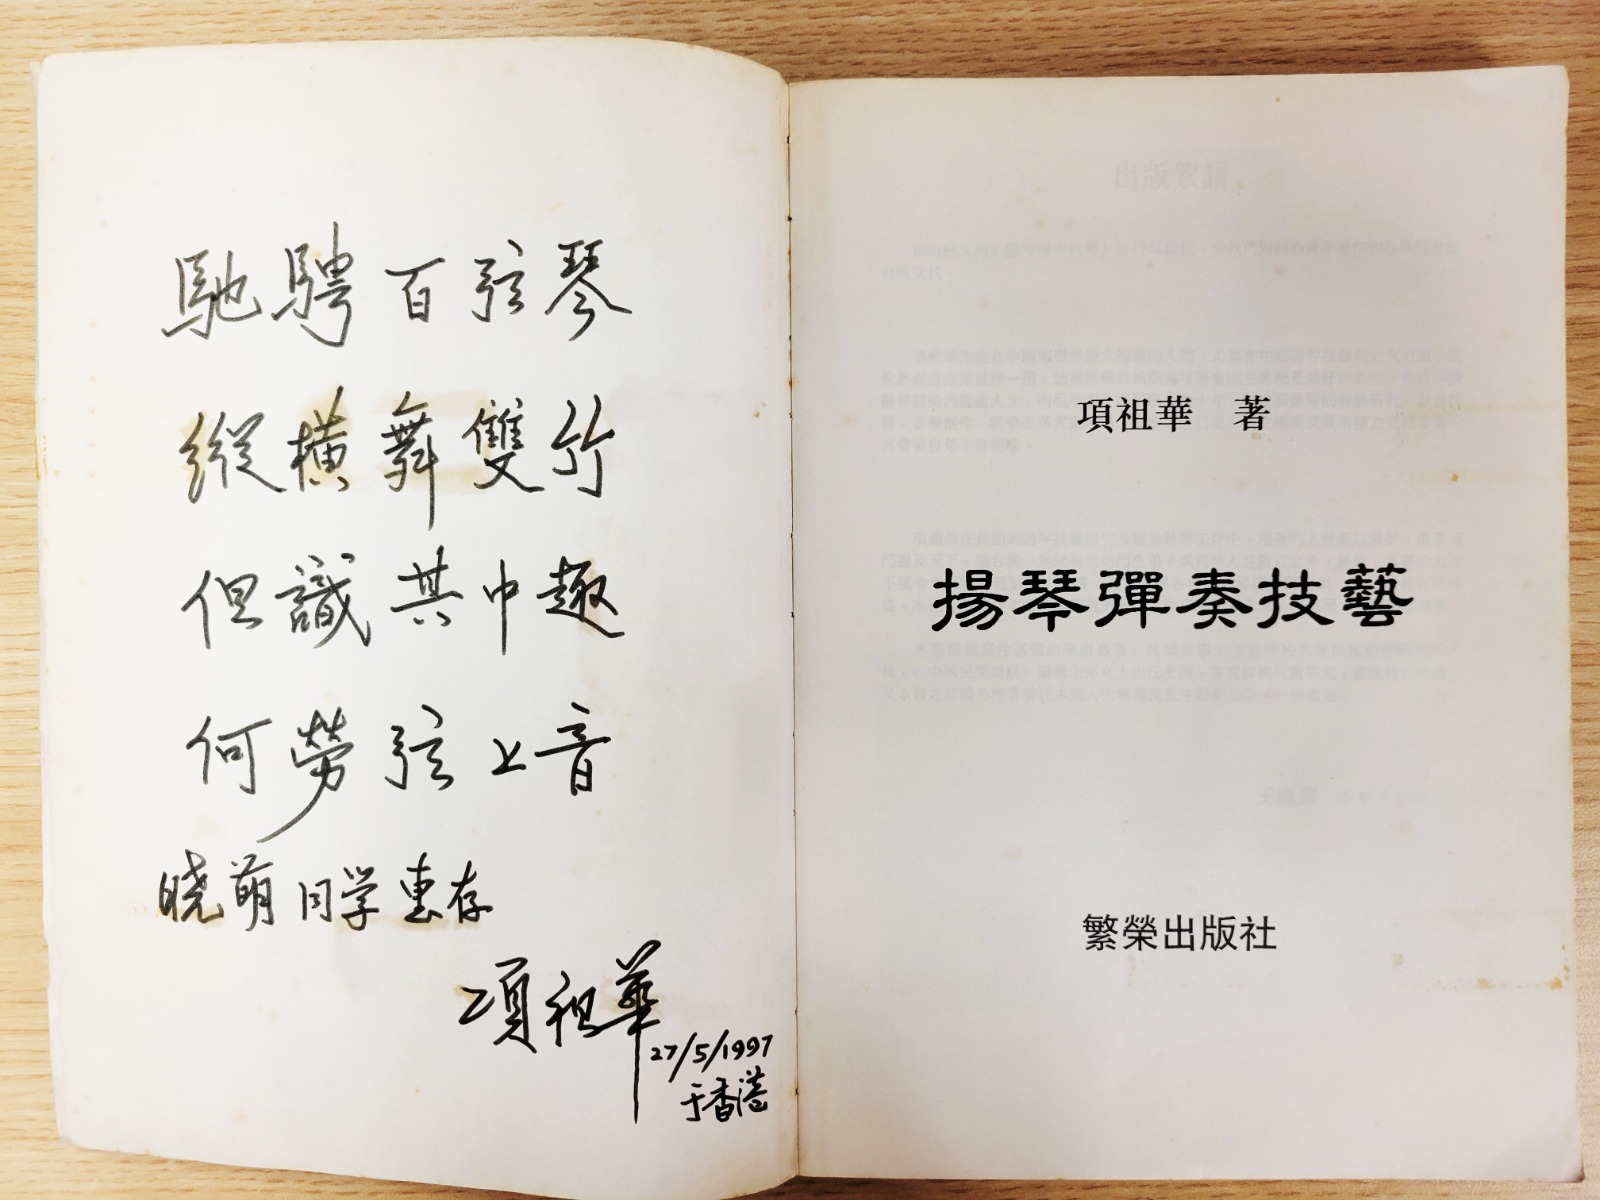 馳騁百弦琴
縱橫舞雙竹
但識其中趣
何勞弦上音
晓萌同学惠存
項祖華
27/5/1997
于香港
項祖華 著
揚琴彈奏技藝
繁榮出版社